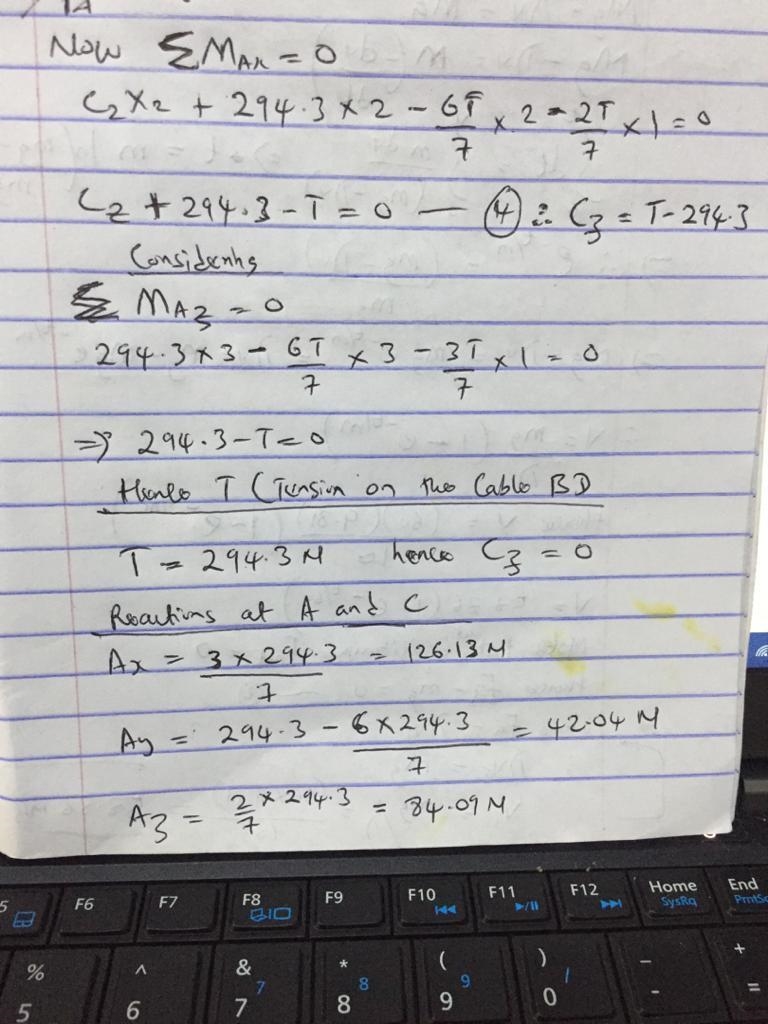 1A
Now ΣMAx = 0
C₂×2 + 294.3×2 - 6T/7 × 2 - 2T/7 × 1 = 0
Cz + 294.3 - T = 0 — ④ ∴ C₃ = T-294.3
Considering
Σ MA₃ = 0
294.3×3 - 6T/7 × 3 - 3T/7 × 1 = 0
=> 294.3 - T = 0
Hence T (Tension on the Cable BD
T = 294.3 N hence C₃ = 0
Reactions at A and C
Ax = 3 × 294.3/7 = 126.13 N
Ay = 294.3 - 6×294.3/7 = 42.04 N
A₃ = 2/7 × 294.3 = 84.09 N
5 F6 F7 F8 F9 F10 F11 F12 Home End
SysRq PrntSc
% ^ & * ( ) - +
5 6 7 7 8 8 9 9 0 / - =